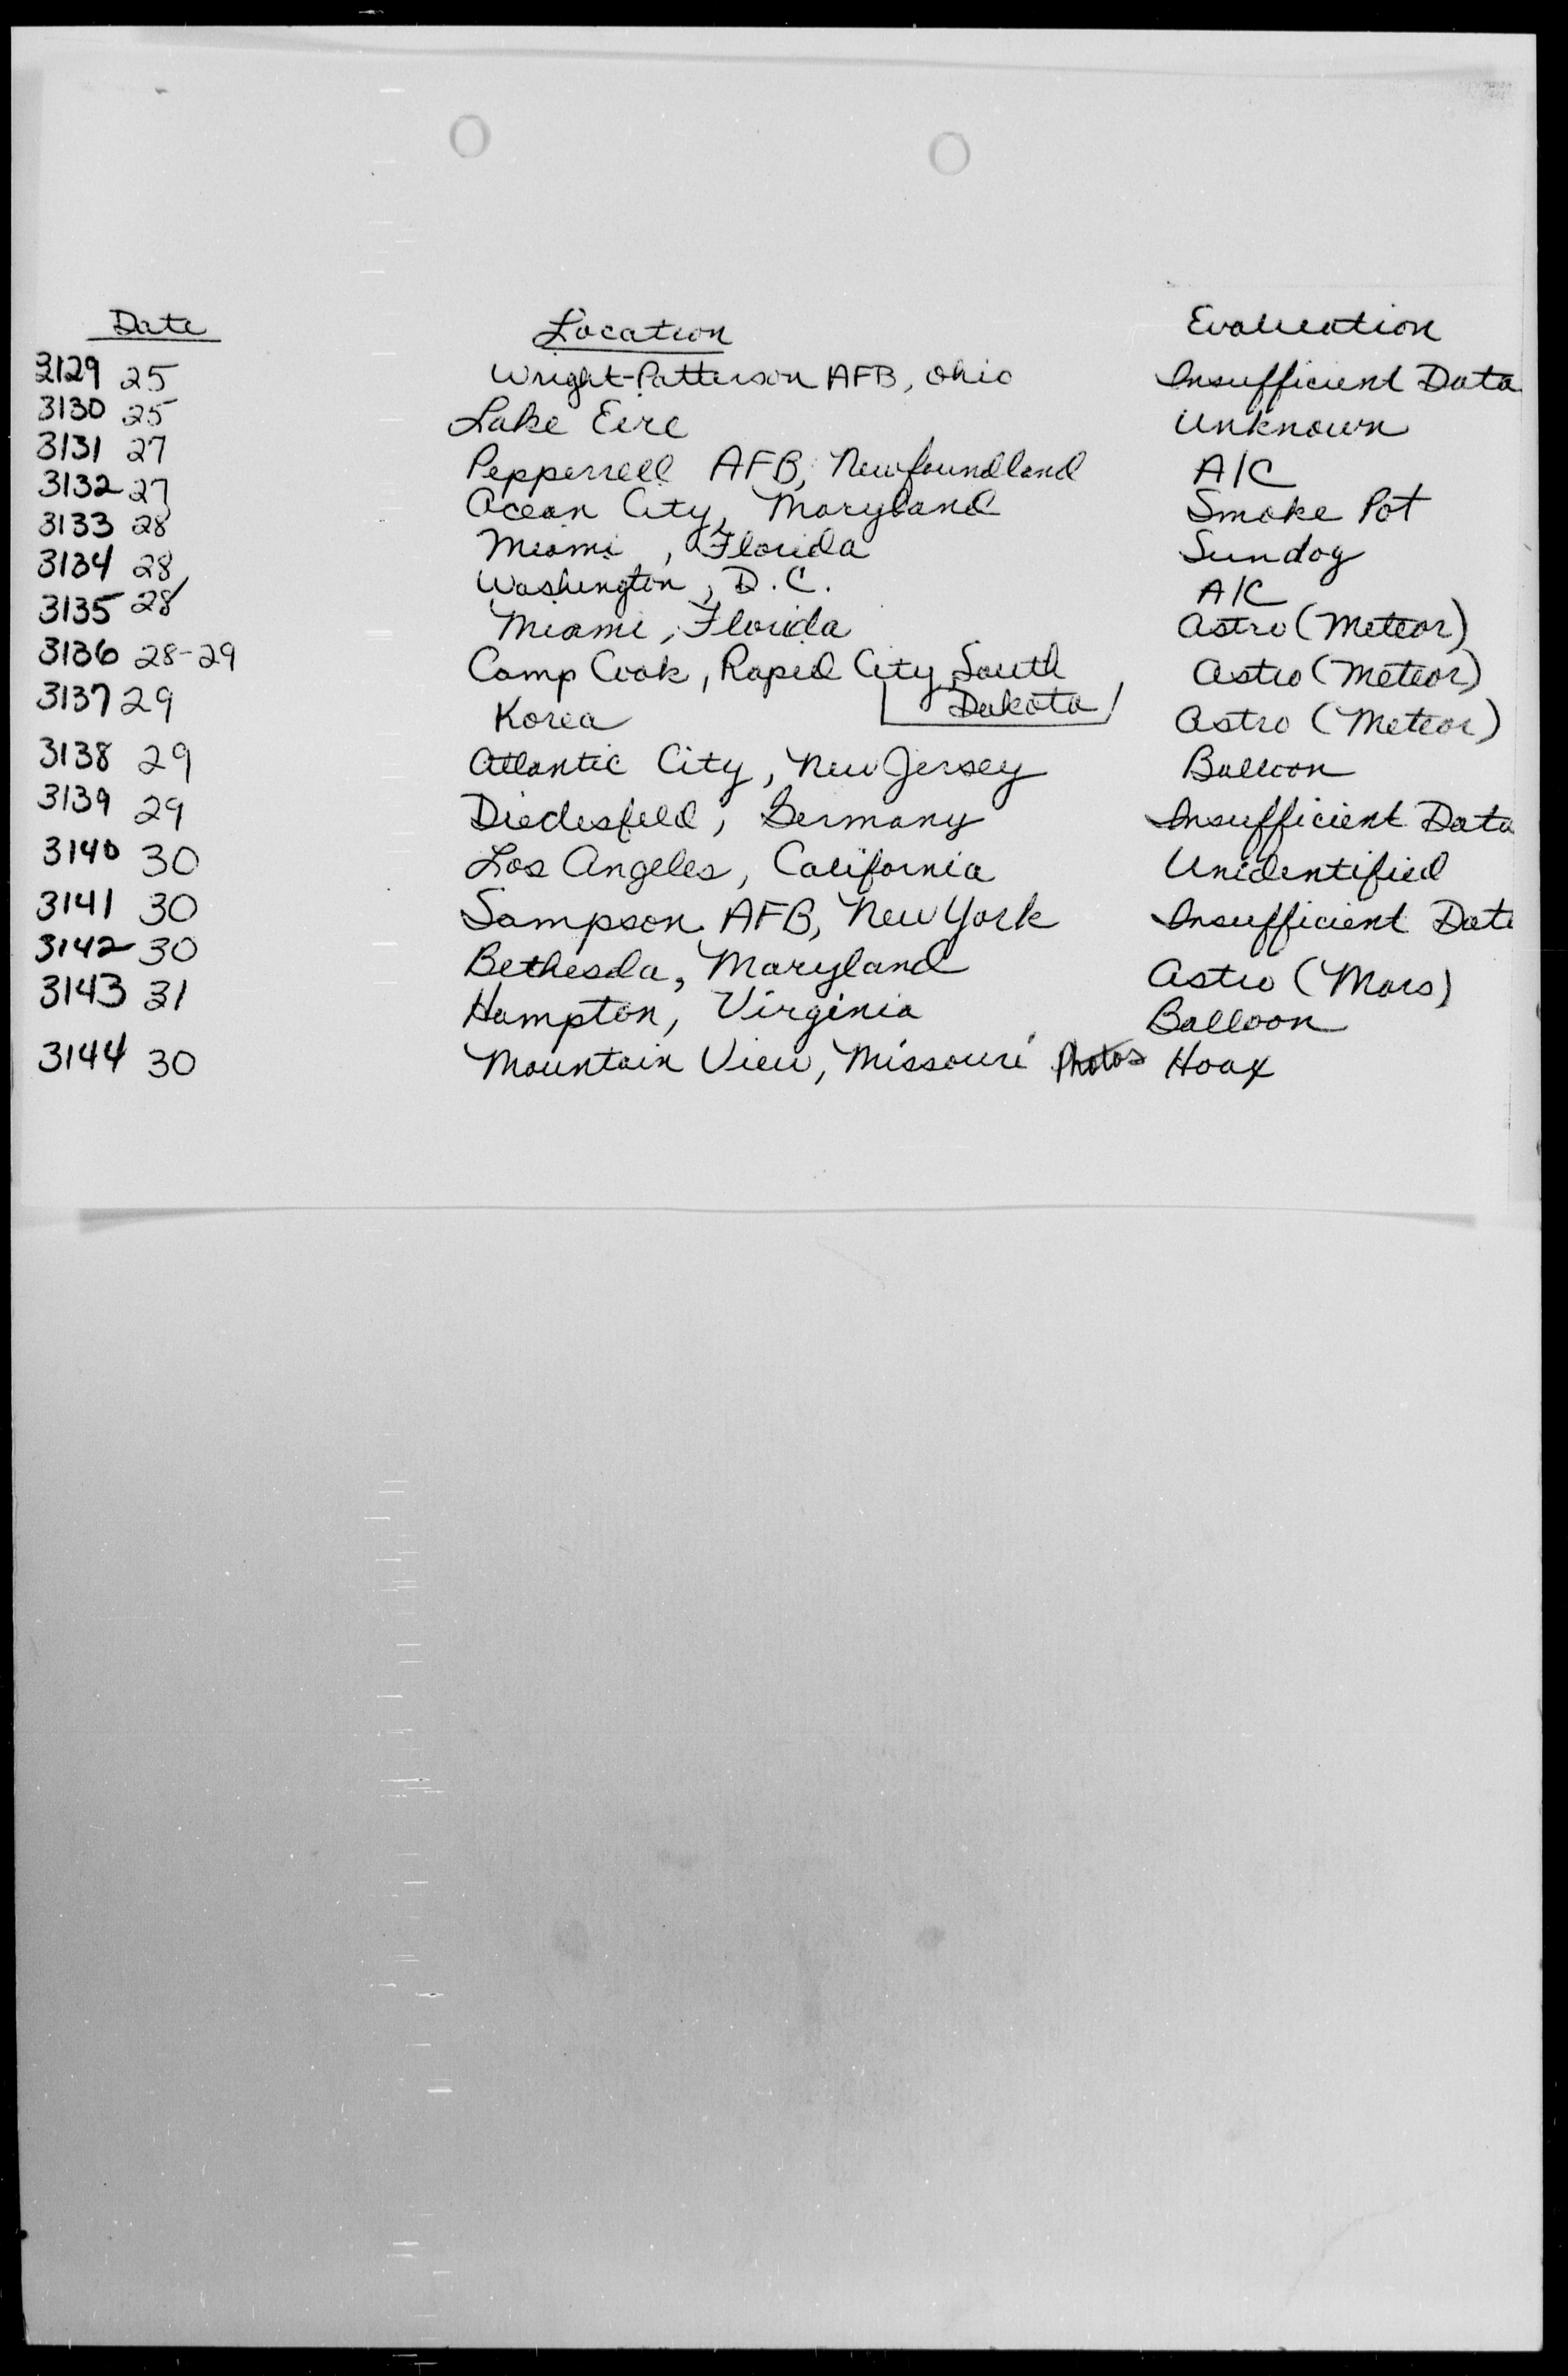 Date Location Evaluation
3129 25 Wright-Patterson AFB, Ohio Insufficient Data
3130 25 Lake Eire Unknown
3131 27 Pepperrell AFB, Newfoundland A/C
3132 27 Ocean City, Maryland Smoke Pot
3133 28 Miami, Florida Sundog
3134 28 Washington, D.C. A/C
3135 28 Miami, Florida Astro (Meteor)
3136 28-29 Camp Cook, Rapid City, South Astro (Meteor)
Dakota
3137 29 Korea Astro (Meteor)
3138 29 Atlantic City, New Jersey Balloon
3139 29 Diedesfeld, Germany Insufficient Data
3140 30 Los Angeles, California Unidentified
3141 30 Sampson AFB, New York Insufficient Data
3142 30 Bethesda, Maryland Astro (Mars)
3143 31 Hampton, Virginia Balloon
3144 30 Mountain View, Missouri Photos Hoax